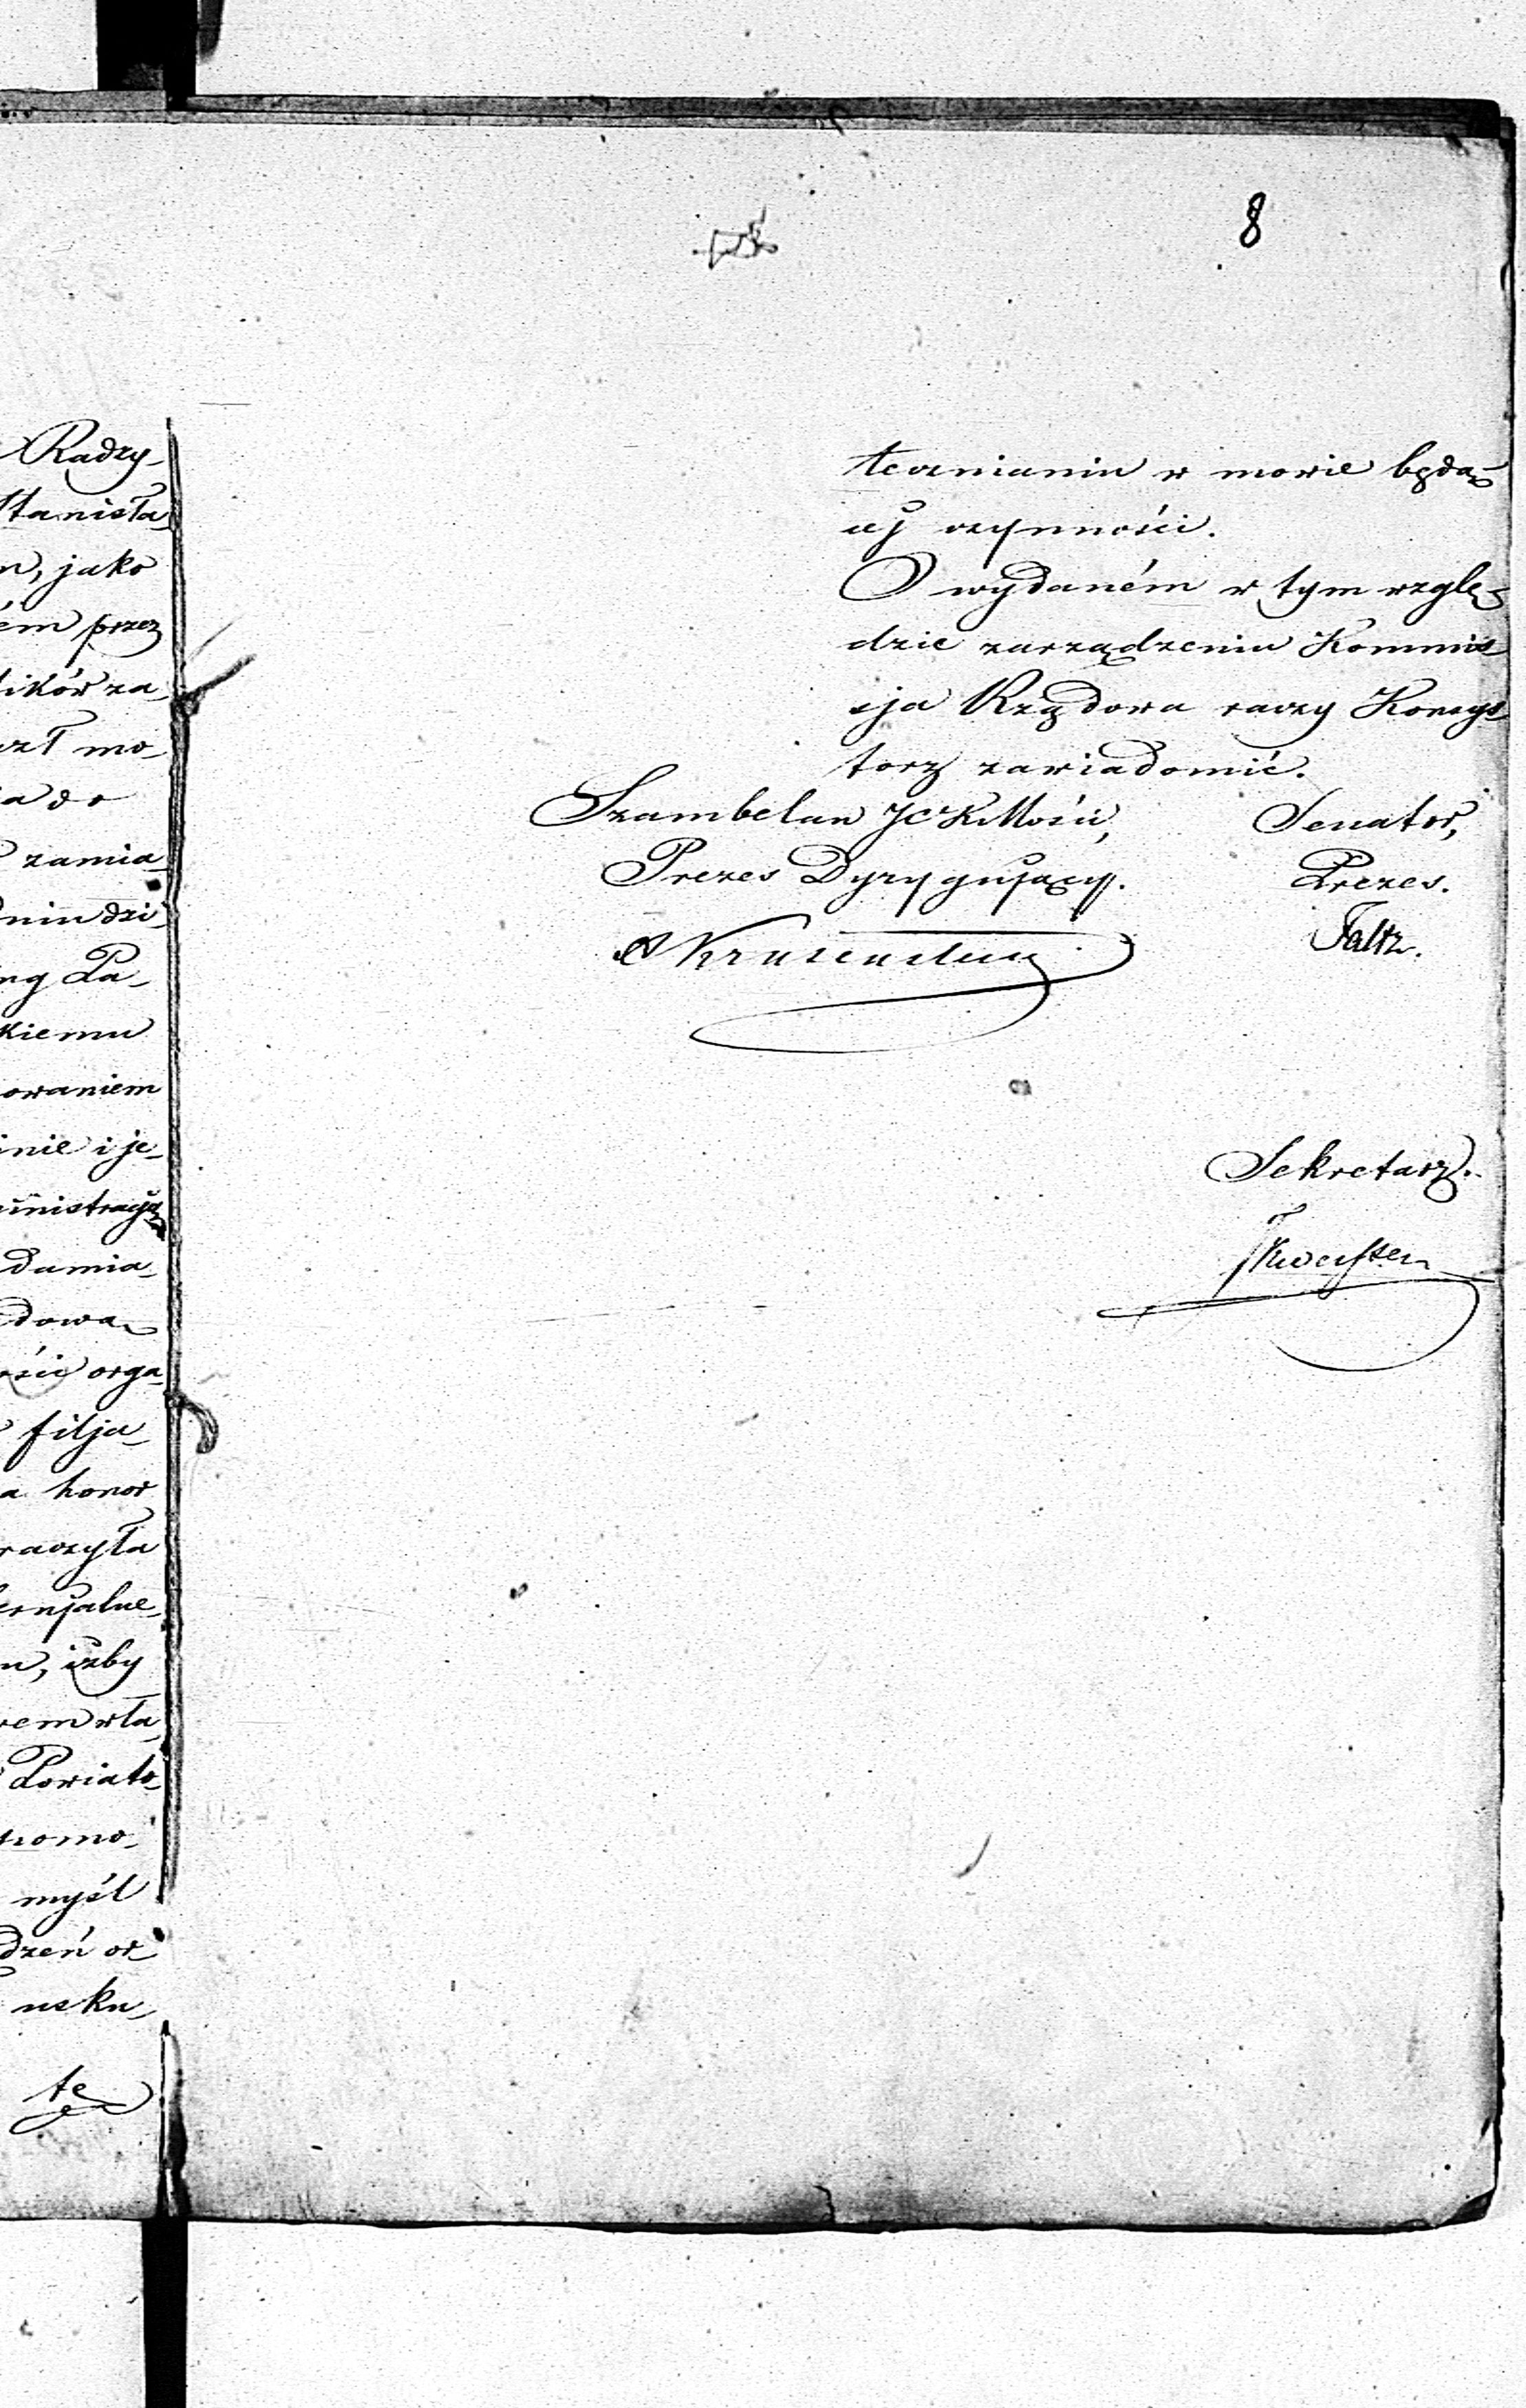 8
Radzy-
Stanisła-
n, jako
ém przez
ików za-
mo-
zamia-
niu dzi-
Pa-
kiemu
owaniem
inie i je-
ministracyj-
damia-
dowa-
ści orga-
filja-
a honor
raczyła
ernjalne-
m, izby
rem wła-
Powiato-
pomo-
myśl
dzeń or-
usku-
te
tecznianiu w mowie będą-
céj czynności.
O wydaném w tym wzglę-
dzie zarządzeniu Kommis-
sja Rządowa raczy Konsys-
torz zawiadomić.
Szambelan JCKMości,
Prezes Dyrygujący.
Krusenstern
Senator,
Prezes.
Faltz.
Sekretarz.